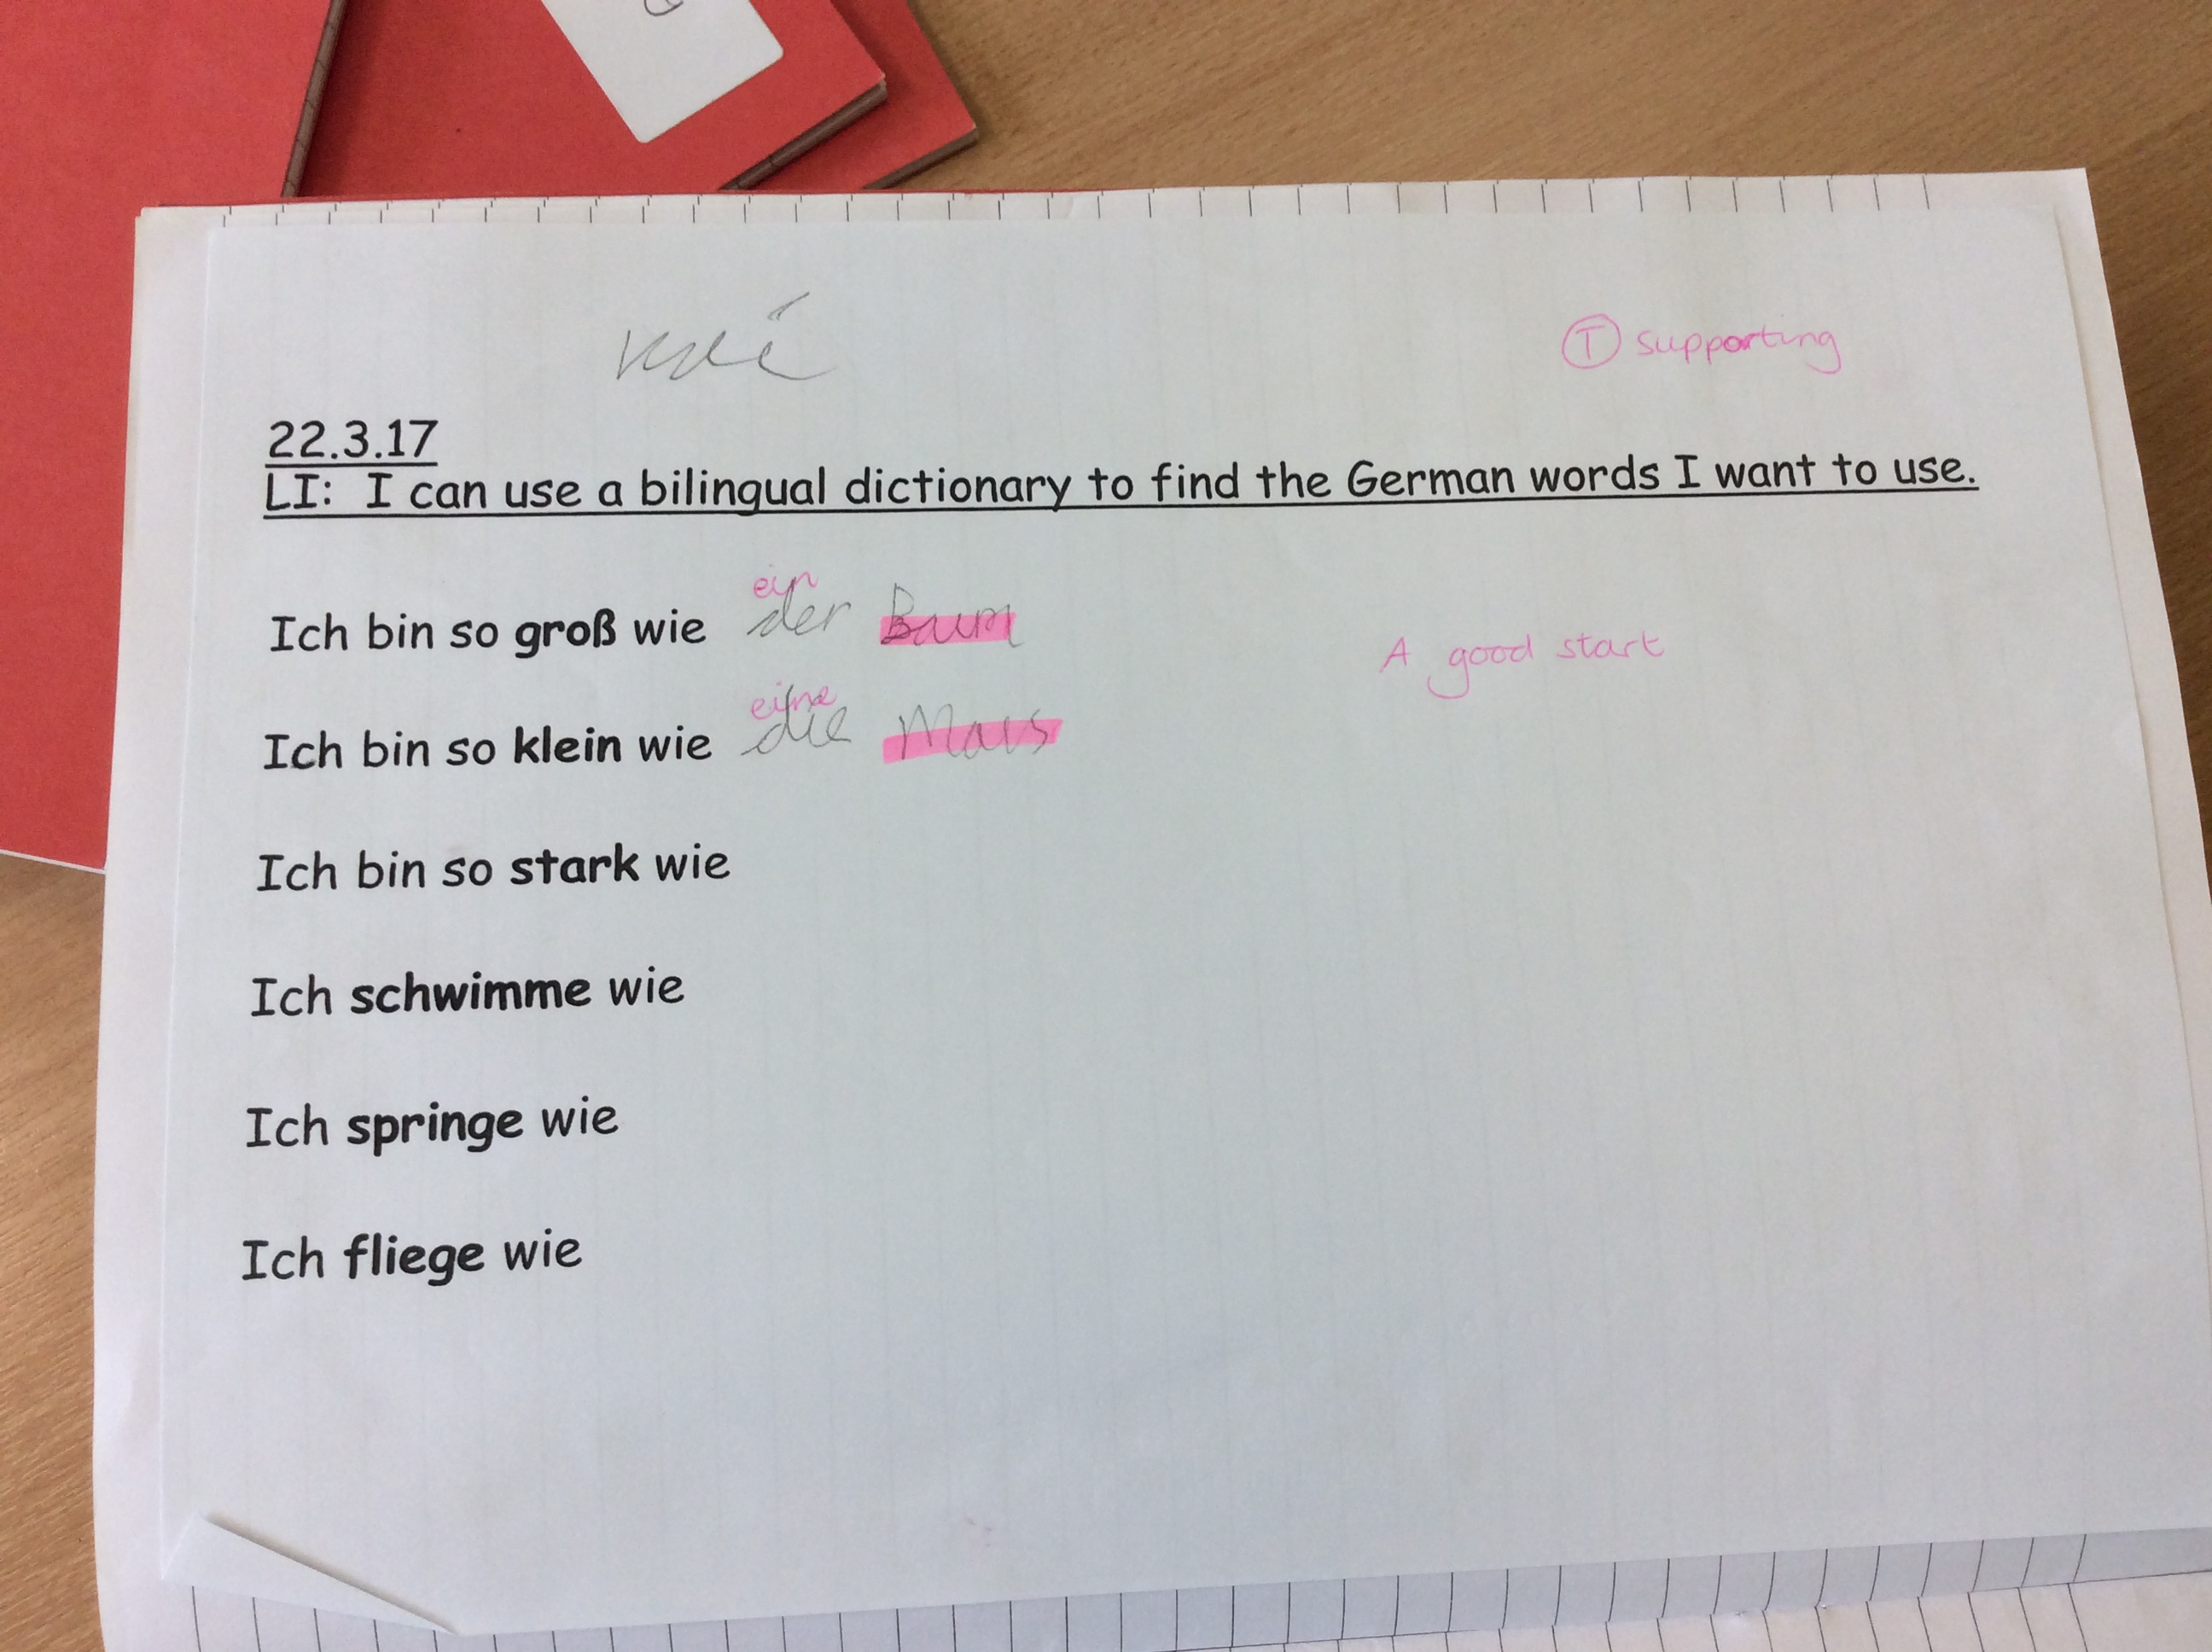 T supporting
22.3.17
LI: I can use a bilingual dictionary to find the German words I want to use.
ein
Ich bin so groß wie der Baum
A good start
eine
Ich bin so klein wie die Maus
Ich bin so stark wie
Ich schwimme wie
Ich springe wie
Ich fliege wie